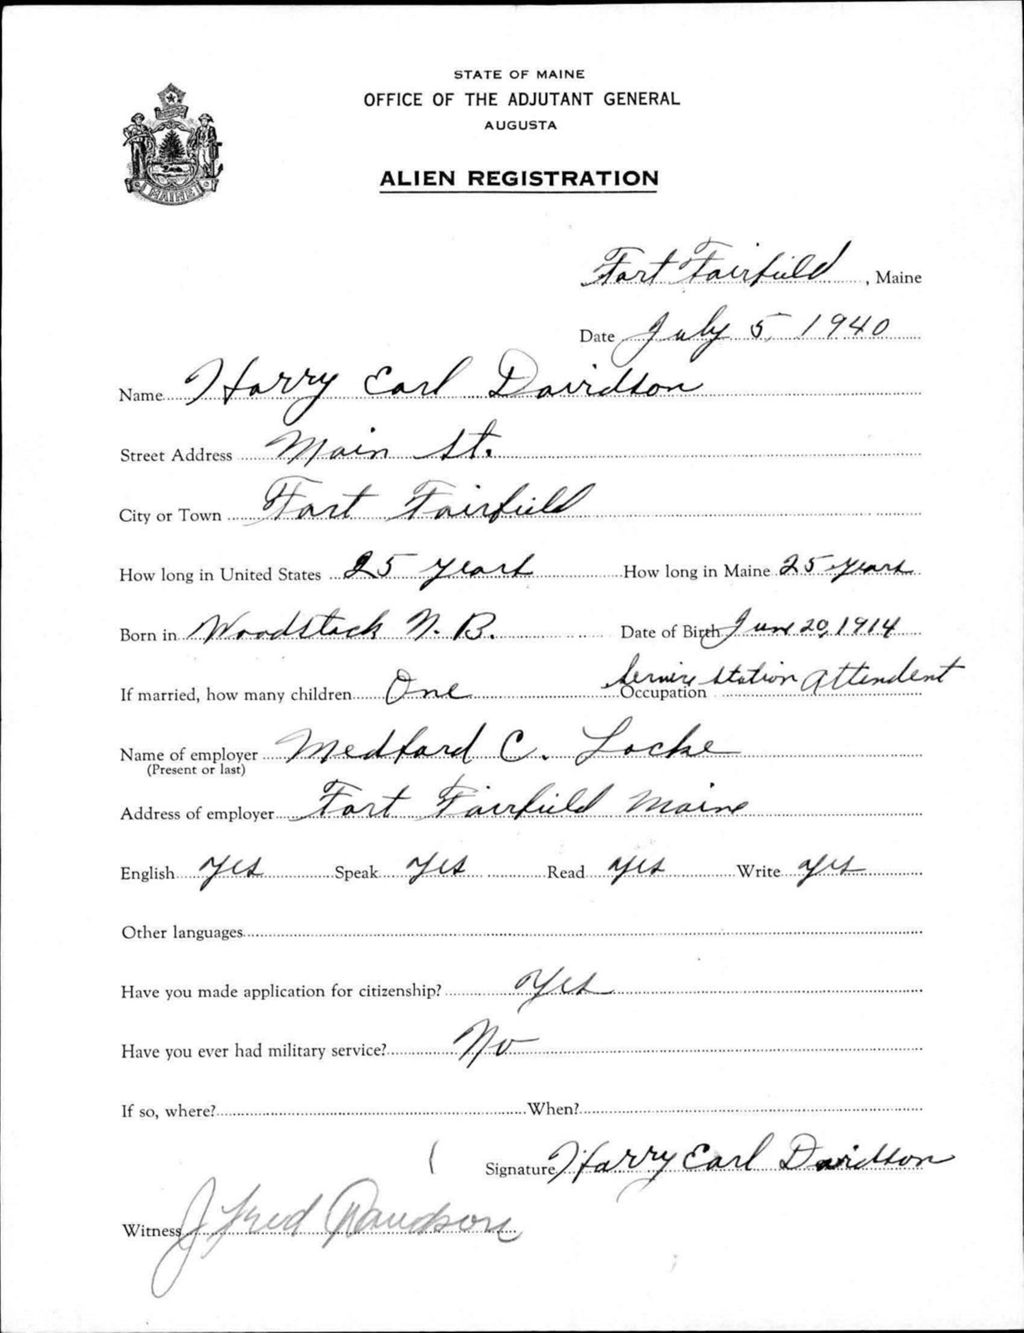 STATE OF MAINE
OFFICE OF THE ADJUTANT GENERAL
AUGUSTA
ALIEN REGISTRATION
MAINE
Fort Fairfield, Maine
Date July 5, 1940
Name Harry Earl Davidson
Street Address Main St.
City or Town Fort Fairfield
How long in United States 25 years How long in Maine 25 years
Born in Woodstock N. B. Date of Birth June 20, 1914
If married, how many children One Occupation Service Station Attendent
Name of employer Medford C. Locke
(Present or last)
Address of employer Fort Fairfield Maine
English Yes Speak Yes Read Yes Write Yes
Other languages
Have you made application for citizenship? Yes
Have you ever had military service? No
If so, where? When?
Signature Harry Earl Davidson
Witness J Fred Davidson